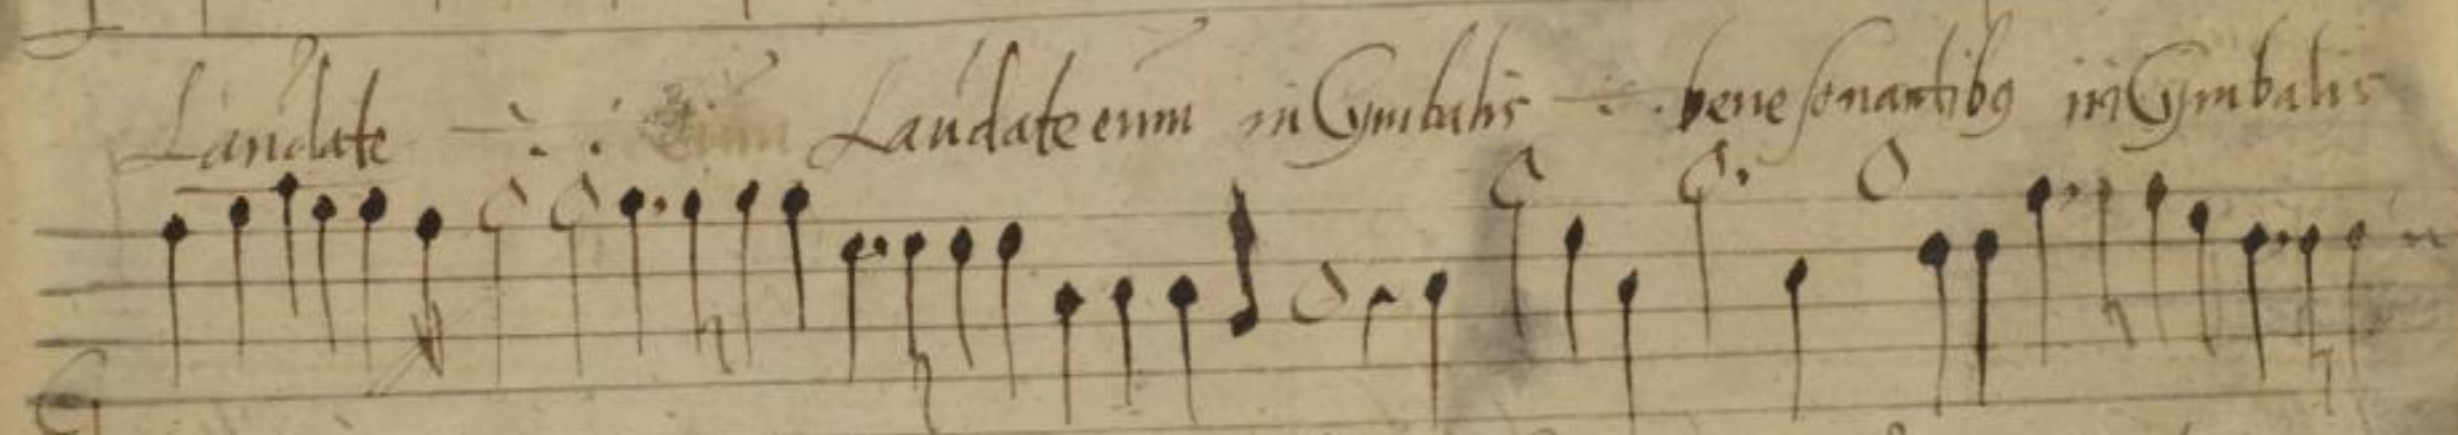 Laudate Laudate eum in Cymbalis bene sonantibus in Cymbalis